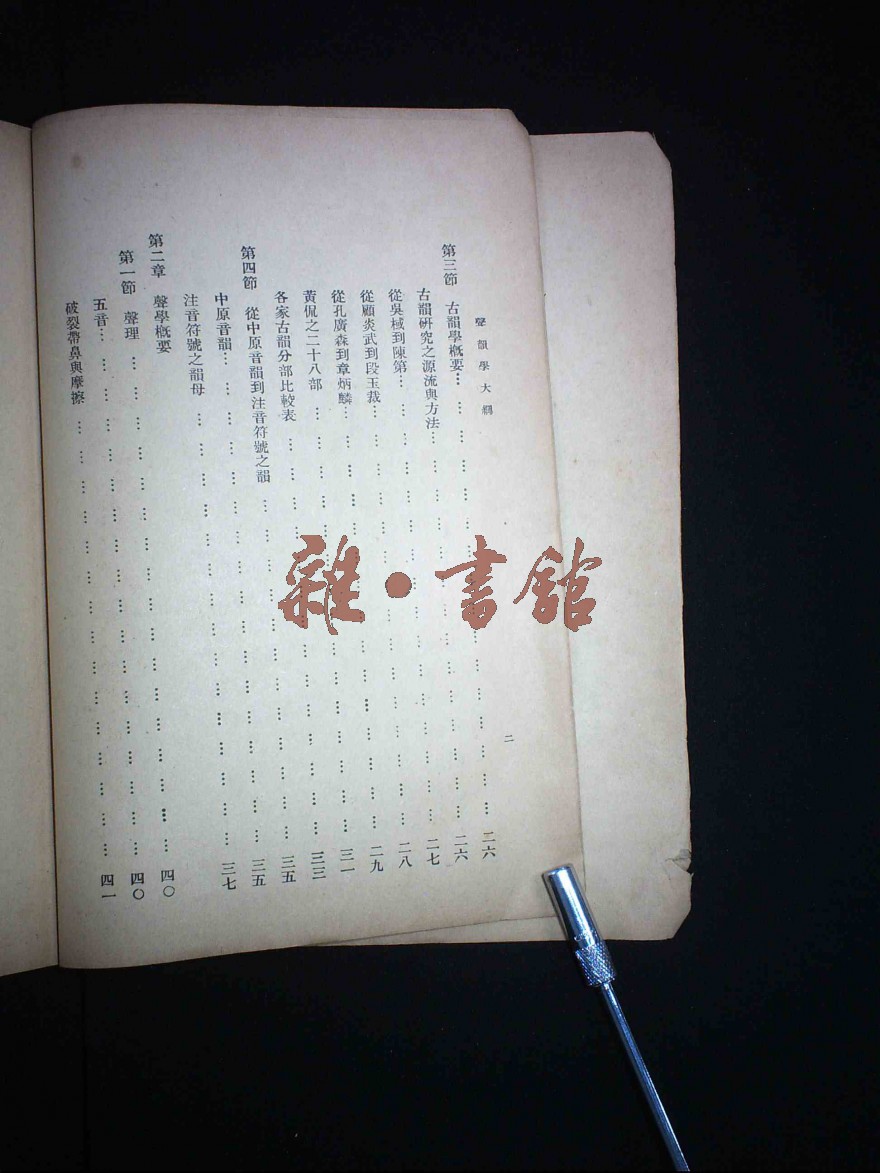 聲韻學大綱
二
第三節 古韻學概要…………………………………………二六
古韻研究之源流與方法…………………………………………二六
從吳棫到陳第…………………………………………二七
從顧炎武到段玉裁…………………………………………二八
從孔廣森到章炳麟…………………………………………二九
黃侃之二十八部…………………………………………三一
各家古韻分部比較表…………………………………………三三
第四節 從中原音韻到注音符號之韻…………………………………………三五
中原音韻…………………………………………三五
注音符號之韻母…………………………………………三七
第二章 聲學概要
第一節 聲理…………………………………………四〇
五音…………………………………………四〇
破裂帶鼻與摩擦…………………………………………四一
雜·書館